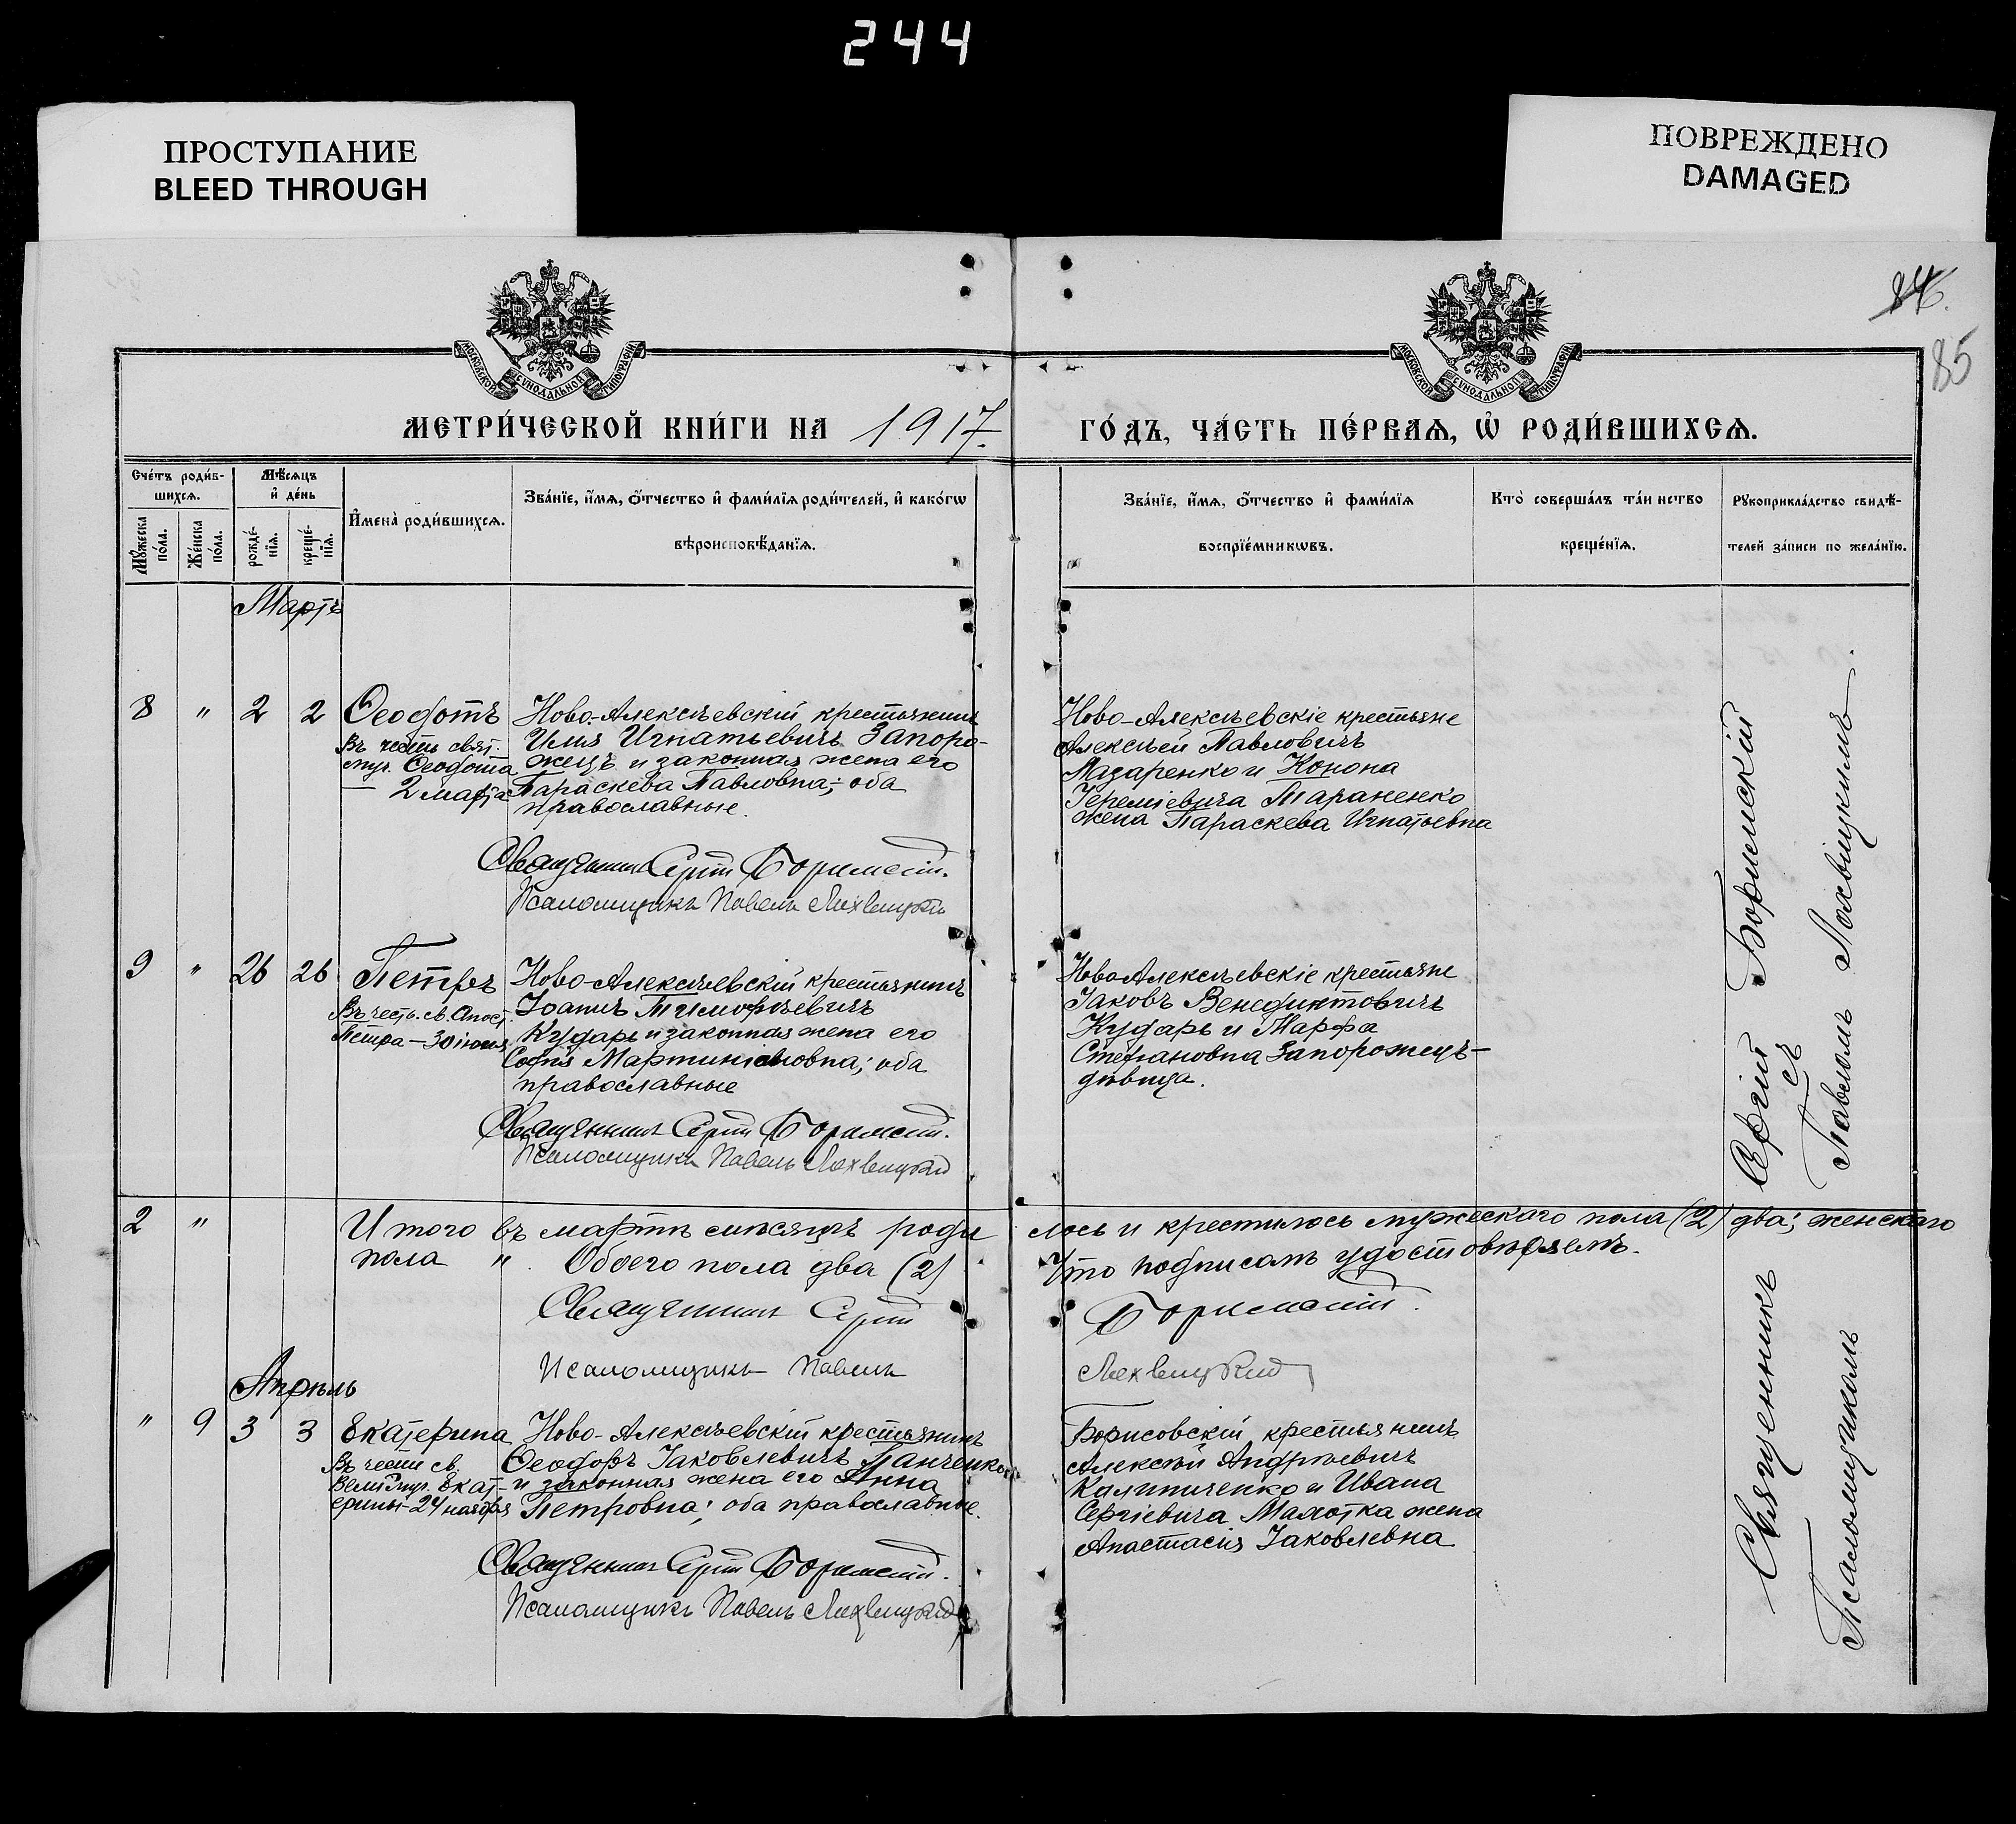 244
ПРОСТУПАНИЕ
BLEED THROUGH
ПОВРЕЖДЕНО
DAMAGED
84.
85
МОСКОВСКОЙ СѴНОДАЛЬНОЙ ТИПОГРАФІИ
МОСКОВСКОЙ СѴНОДАЛЬНОЙ ТИПОГРАФІИ
МЕТРИ́ЧЕСКОЙ КНИ́ГИ НА 1917.
ГО́ДЪ, ЧА́СТЬ ПЕ́РВАѦ, Ѽ РОДИ́ВШИХСѦ.
Сче́тъ роди́в-
шихсѧ.
Мꙋ́жеска по́ла.
Же́нска по́ла.
Мѣ́сѧцъ
и҆ де́нь
рожде́-
нїѧ.
креще́-
нїѧ.
И҆мена̀ роди́вшихсѧ.
Зва́нїе, и҆́мѧ, ѻ҆́тчество и҆ фами́лїѧ роди́телей, и҆ како́гѡ
вѣроисповѣ́данїѧ.
Зва́нїе, и҆́мѧ, ѻ҆́тчество и҆ фами́лїѧ
воспрїе́мникѡвъ.
Кто̀ соверша́лъ та́инство
креще́нїѧ.
Рꙋкоприкла́дство свидѣ́-
телей за́писи по жела́нїю.
Мартъ
8 " 2 2
Ѳеодотъ
Въ честь свят.
муч. Ѳеодота
— 2 марта
Ново-Алексѣевскій крестьянинъ
Илія Игнатьевичъ Запоро-
жецъ и законная жена его
Параскева Павловна; оба
православные.
Священникъ Сергій Бориманскій.
Псаломщикъ Павелъ Лохвицкій
Ново-Алексѣевскіе крестьяне
Алексѣй Павловичъ
Назаренко и Конона
Іереміевича Тараненко
жена Параскева Игнатьевна
9 " 26 26
Петръ
Въ честь св. Апост.
Петра — 30 іюня
Ново-Алексѣевскій крестьянинъ
Іоаннъ Тимофѣевичъ
Кударь и законная жена его
Софія Мартиніановна; оба
православные
Священникъ Сергій
Псаломщикъ Павелъ Лохвицкій
Ново-Алексѣевскіе крестьяне
Іаковъ Венедиктовичъ
Кударь и Марфа
Стефановна Запорожецъ —
дѣвица.
2 "
Итого въ мартѣ мѣсяцѣ роди
лось и крестилось мужескаго пола (2) два; женскаго
пола " . Обоего пола два (2)
Что подписомъ удостовѣряемъ.
Священникъ Сергій
Псаломщикъ Павелъ
Лохвицкій
Апрѣль
" 9 3 3
Екатерина
Въ честь св.
Великмуч. Екат-
ерины — 24 ноября
Ново-Алексѣевскій крестьянинъ
Ѳеодоръ Іаковлевичъ Панченко
и законная жена его Анна
Петровна; оба православные.
Священникъ Сергій
Псаломщикъ Павелъ Лохвицкій
Борисовскій крестьянинъ
Алексѣй Андреевичъ
Калиниченко и Ивана
Сергіевича Малотка жена
Анастасія Іаковлевна
Священникъ Сергій
съ
Псаломщикомъ Павломъ Лохвицкимъ.